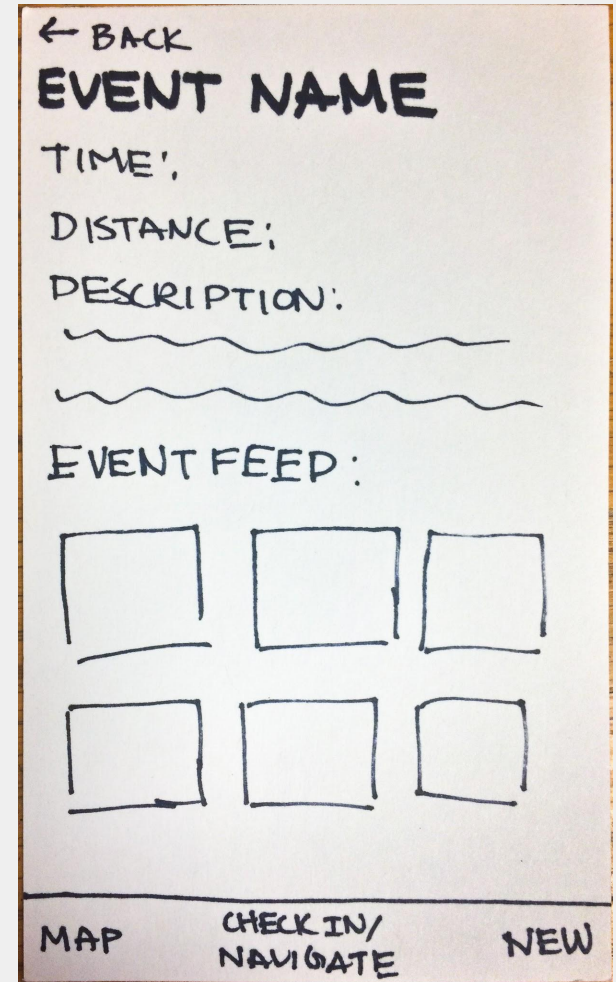 ← BACK
EVENT NAME
TIME:
DISTANCE:
DESCRIPTION:
EVENT FEED:
MAP
CHECK IN/
NAVIGATE
NEW